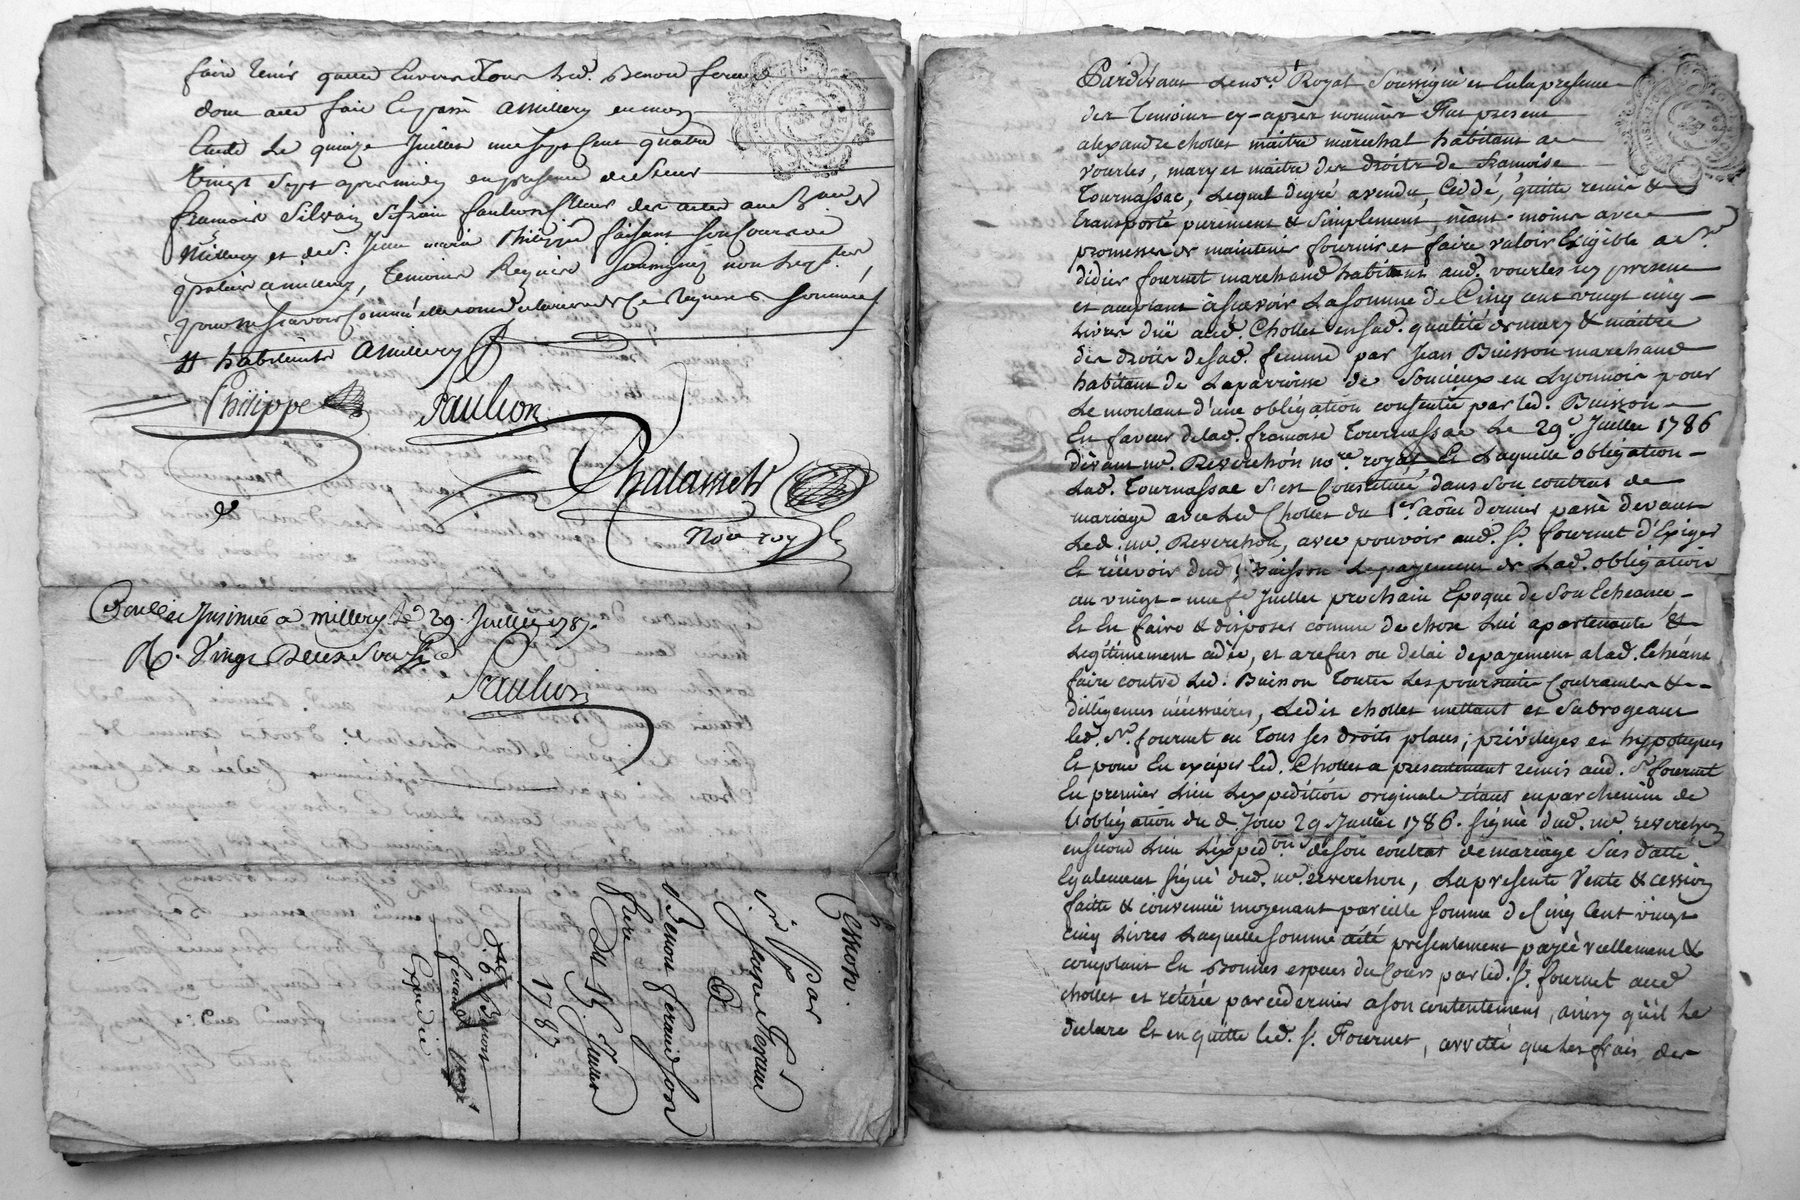 faire tenir quitte envers tous led. Benoit feraud
dont acte fait et passé a Millery en mon
Etude le quinze Juillet mil sept cent quatre
vingt sept après midy en presence de Sieur
françois Silvain Paulion des actes au
Millery et de Sr. Jean marie Philippe faisant
a millery, temoins Requis Soussignés non lesp.
pour ne savoir comme elles ont declaré de ce requises & sommées
# habitants a Millery
Philippe Paulion
Chalamet
Nore roy
Con.lé et Insinué a millery Le 29. Juillet 1787.
R. Vingt Deux Sous
Paulion
Cession.
par
Jeanne Feraud
a
Benoit feraud son
frere
Du 15 Juillet
1787.
Benoit
feraud
Expediée
Pardevant Le nore. Royal Soussigné et en la presence
des temoins cy-après nommés Fut present
alexandre chollet maitre marèchal habitant de
vourles, mary et maitre des droits de francoise
Tournassac, Lequel degré a vendu, Ceddé, quitté remis &
transporté purement & simplement, nèant-moins avec
promesse de maintenir fournir et faire valoir Exigible a Sr
didier fournet marchand habitant aud. vourles icy present
et acceptant àsçavoir La somme de Cinq cent vingt cinq
Livres düe aud. Chollet en sad. qualité de mary & maitre
des droits de sad. femme par Jean Buisson marchand
habitant de La parroisse de Soucieux en Lyonnois pour
Le montant d'une obligation consentie par led. Buisson
En faveur de lad. francoise Tournassac Le 29e. Juillet 1786
dèvant me. Reverchon nore. royal Et Laquelle obligation
Lad. Tournassac s'est Constituée dans son contrat de
mariage avec Led Chollet du 1er. aôut dernier passé devant
Led. me. Reverchon, avec pouvoir aud. Sr. fournet d'Exiger
Et recevoir dud. Buisson Le payement de Lad. obligation
au vingt-neuf Juillet prochain Epoque de son Echeance
Et En faire & disposer comme de chose Lui apartenante &
Legitimement cédée, et a refus ou delai de payement a lad. Echéance
faire contre Led. Buisson toutes Les poursuites Contraintes &
dilligences nécessaires, Ledit chollet mettant et Subrogeant
led. Sr. fournet en tous ses droits places, privileges et hypoteques
Et pour En exciper led. Chollet a presentement remis aud. Sr fournet
En premier Lieu L'expedition originale étant en parchemin de
L'obligation du d. Jour 29 Juillet 1786. signée dud. me. reverchon
en second Lieu L'expedon. de son contrat de mariage Sus datté
Egalement signé dud. me. reverchon, La presente Vente & cession
faitte & convenüe moyenant pareille somme de Cinq Cent vingt
cinq Livres Laquelle somme a été présentement payée réellement &
comptant En Bonnes especes du Cours par led. Sr. fournet aud
chollet et retirée par ce dernier a son contentement, ainsy qu'il Le
declare Et en quitte led. Sr. Fournet, arretté que Les frais des